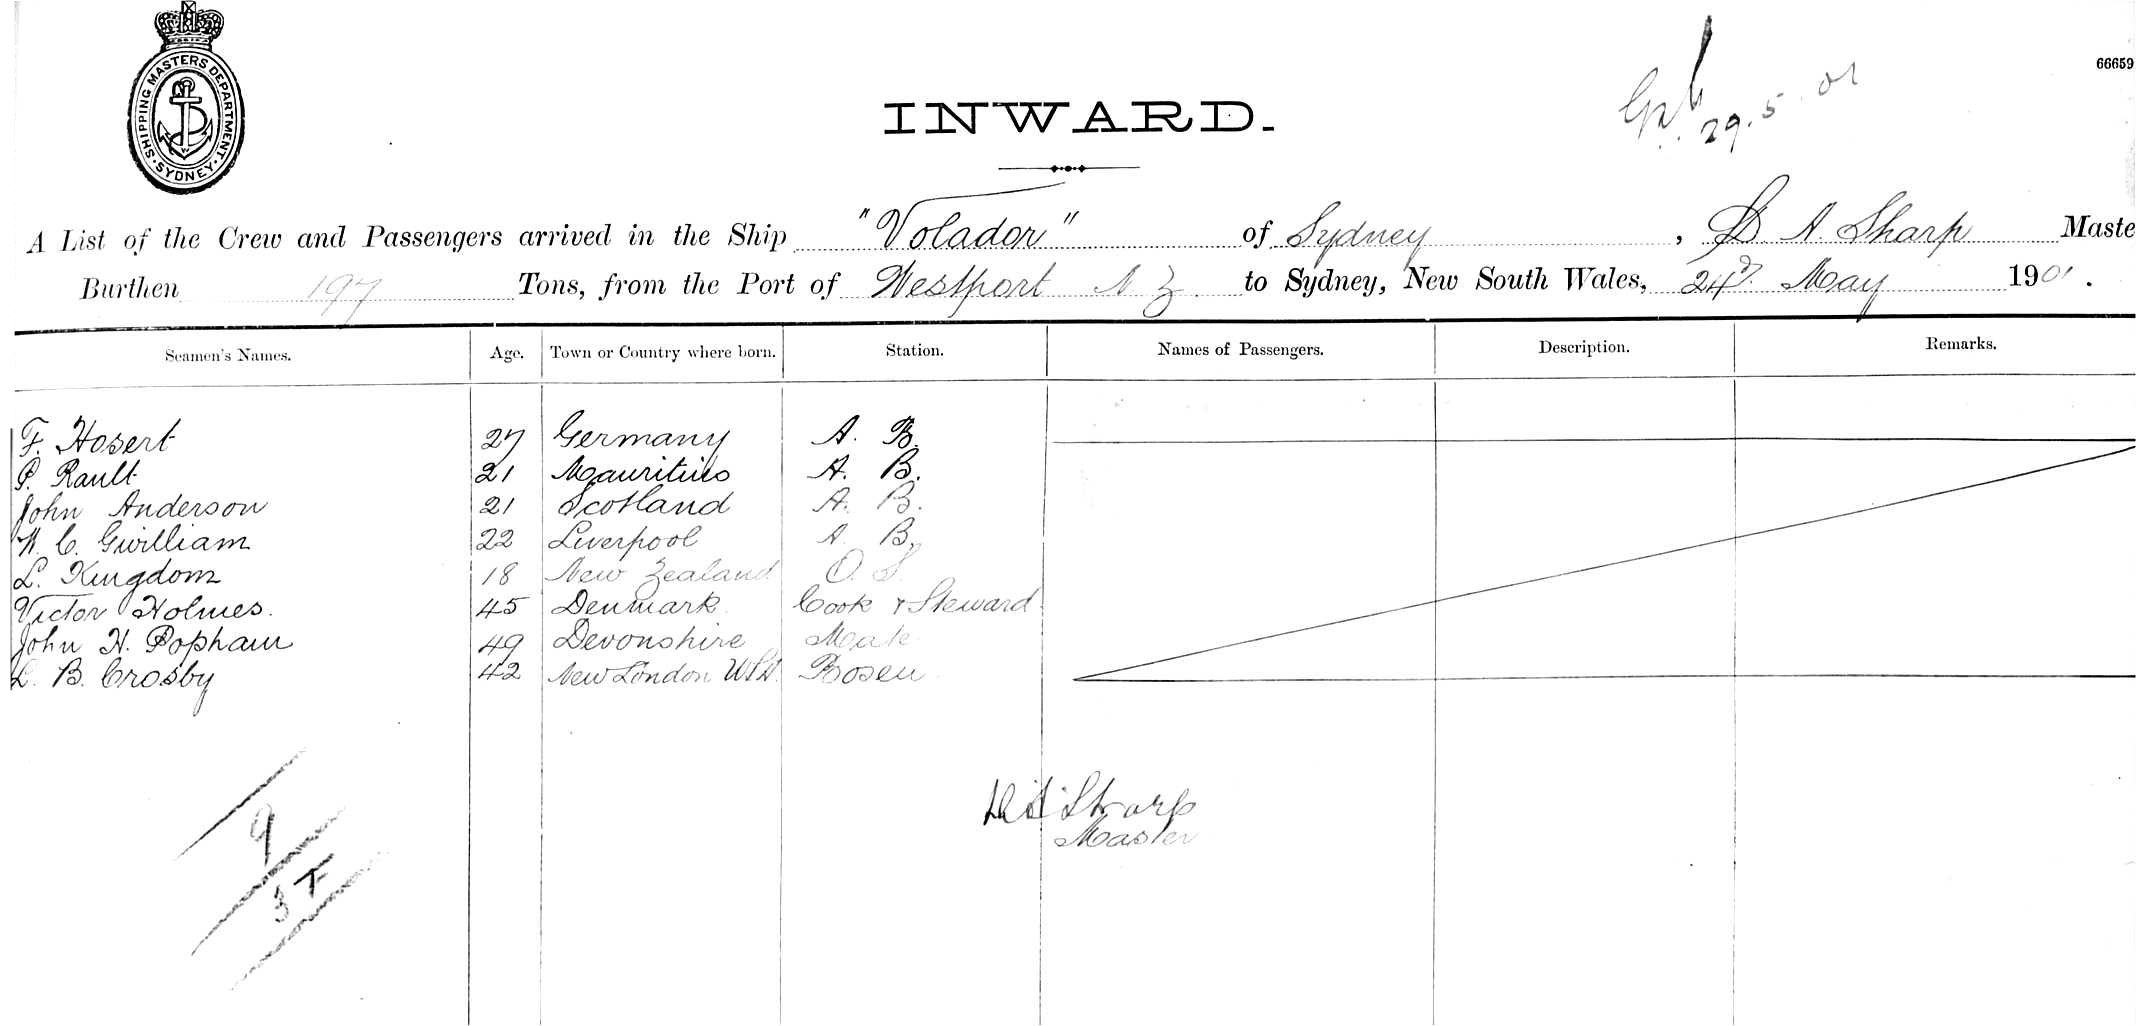 SHIPPING MASTERS DEPARTMENT. SYDNEY.
66659
INWARD.
29.5.01
A List of the Crew and Passengers arrived in the Ship "Volador" of Sydney, D A Sharp Maste
Burthen 197 Tons, from the Port of Westport N Z. to Sydney, New South Wales, 24 May 1901.
Seamen's Names. Age. Town or Country where born. Station. Names of Passengers. Description. Remarks.
F. Hosert 27 Germany A. B.
P. Rault 21 Mauritius A. B.
John Anderson 21 Scotland A. B.
W. C. Gwilliam 22 Liverpool A. B.
L. Kingdom 18 New Zealand O. S.
Victor Holmes. 45 Denmark Cook & Steward
John H. Popham 49 Devonshire Mate
L. B. Crosby 42 New London Bosen
D A Sharp
Master
9